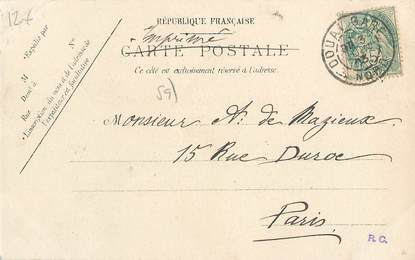 12€
RÉPUBLIQUE FRANÇAISE
Imprimé
CARTE POSTALE
Ce côté est exclusivement réservé à l'adresse.
N°
Expédié par
M
Demt à
Rue
L'inscription du nom et de l'adresse de
l'expéditeur est facultative
DOUAI GARE
NORD
59)
Monsieur A. de Mazieux
15 Rue Duroc
Paris
R.G.